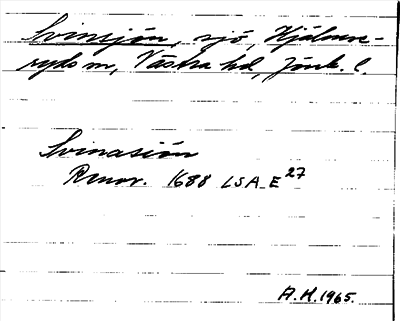 Svinsjön, sjö, Hjälmse-
ryds sn, Västra hd, Jönk. l.
Svinasiön
Renov. 1688 LSA E 27
A.H. 1965.